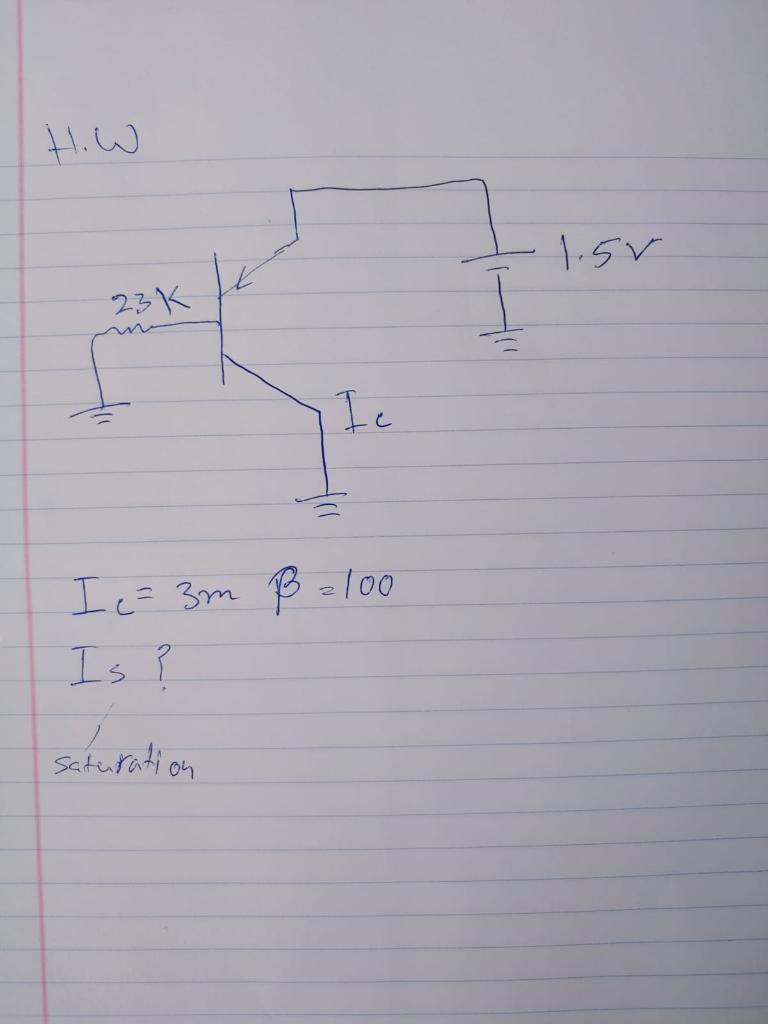 H.W
1.5V
23K
Ic
Ic = 3m β = 100
Is ?
saturation